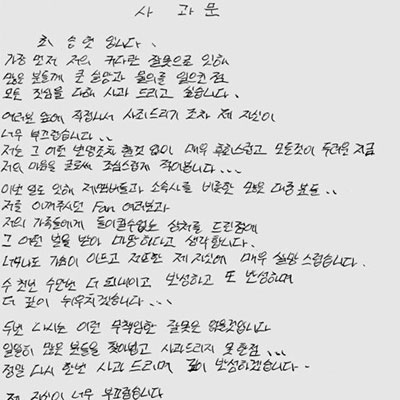 사과문
최승현입니다.
가장 먼저 저의 커다란 잘못으로 인해
많은 분들께 큰 실망과 물의를 일으킨 점
모든 진심을 다해 사과드리고 싶습니다.
여러분 앞에 직접나서 사죄드리기 조차 제 자신이
너무 부끄럽습니다..
저는 그 어떤 변명조차 할것 없이 매우 후회스럽고 모든것이 두려운 지금
저의 마음을 글로써 조심스럽게 적어봅니다...
이번 일로 인해 제 멤버들과 소속사를 비롯한 많은 대중 분들..
저를 아껴주시던 Fan 여러분과
저의 가족들에게 돌이킬수없는 상처를 드린점에
그 어떤 벌을 받아 마땅하다고 생각합니다.
너무나도 가슴이 아프고 저또한 제 자신에 매우 실망스럽습니다.
수 천번 수만번 더 되내이고 반성하고 또 반성하며
더 깊이 뉘우치겠습니다...
두번 다시는 이런 무책임한 잘못은 없을것입니다
일일히 많은 분들을 찾아뵙고 사과드리지 못한점...
정말 다시 한번 사과드리며 깊이 반성하겠습니다.
제 자신이 너무 부끄럽습니다